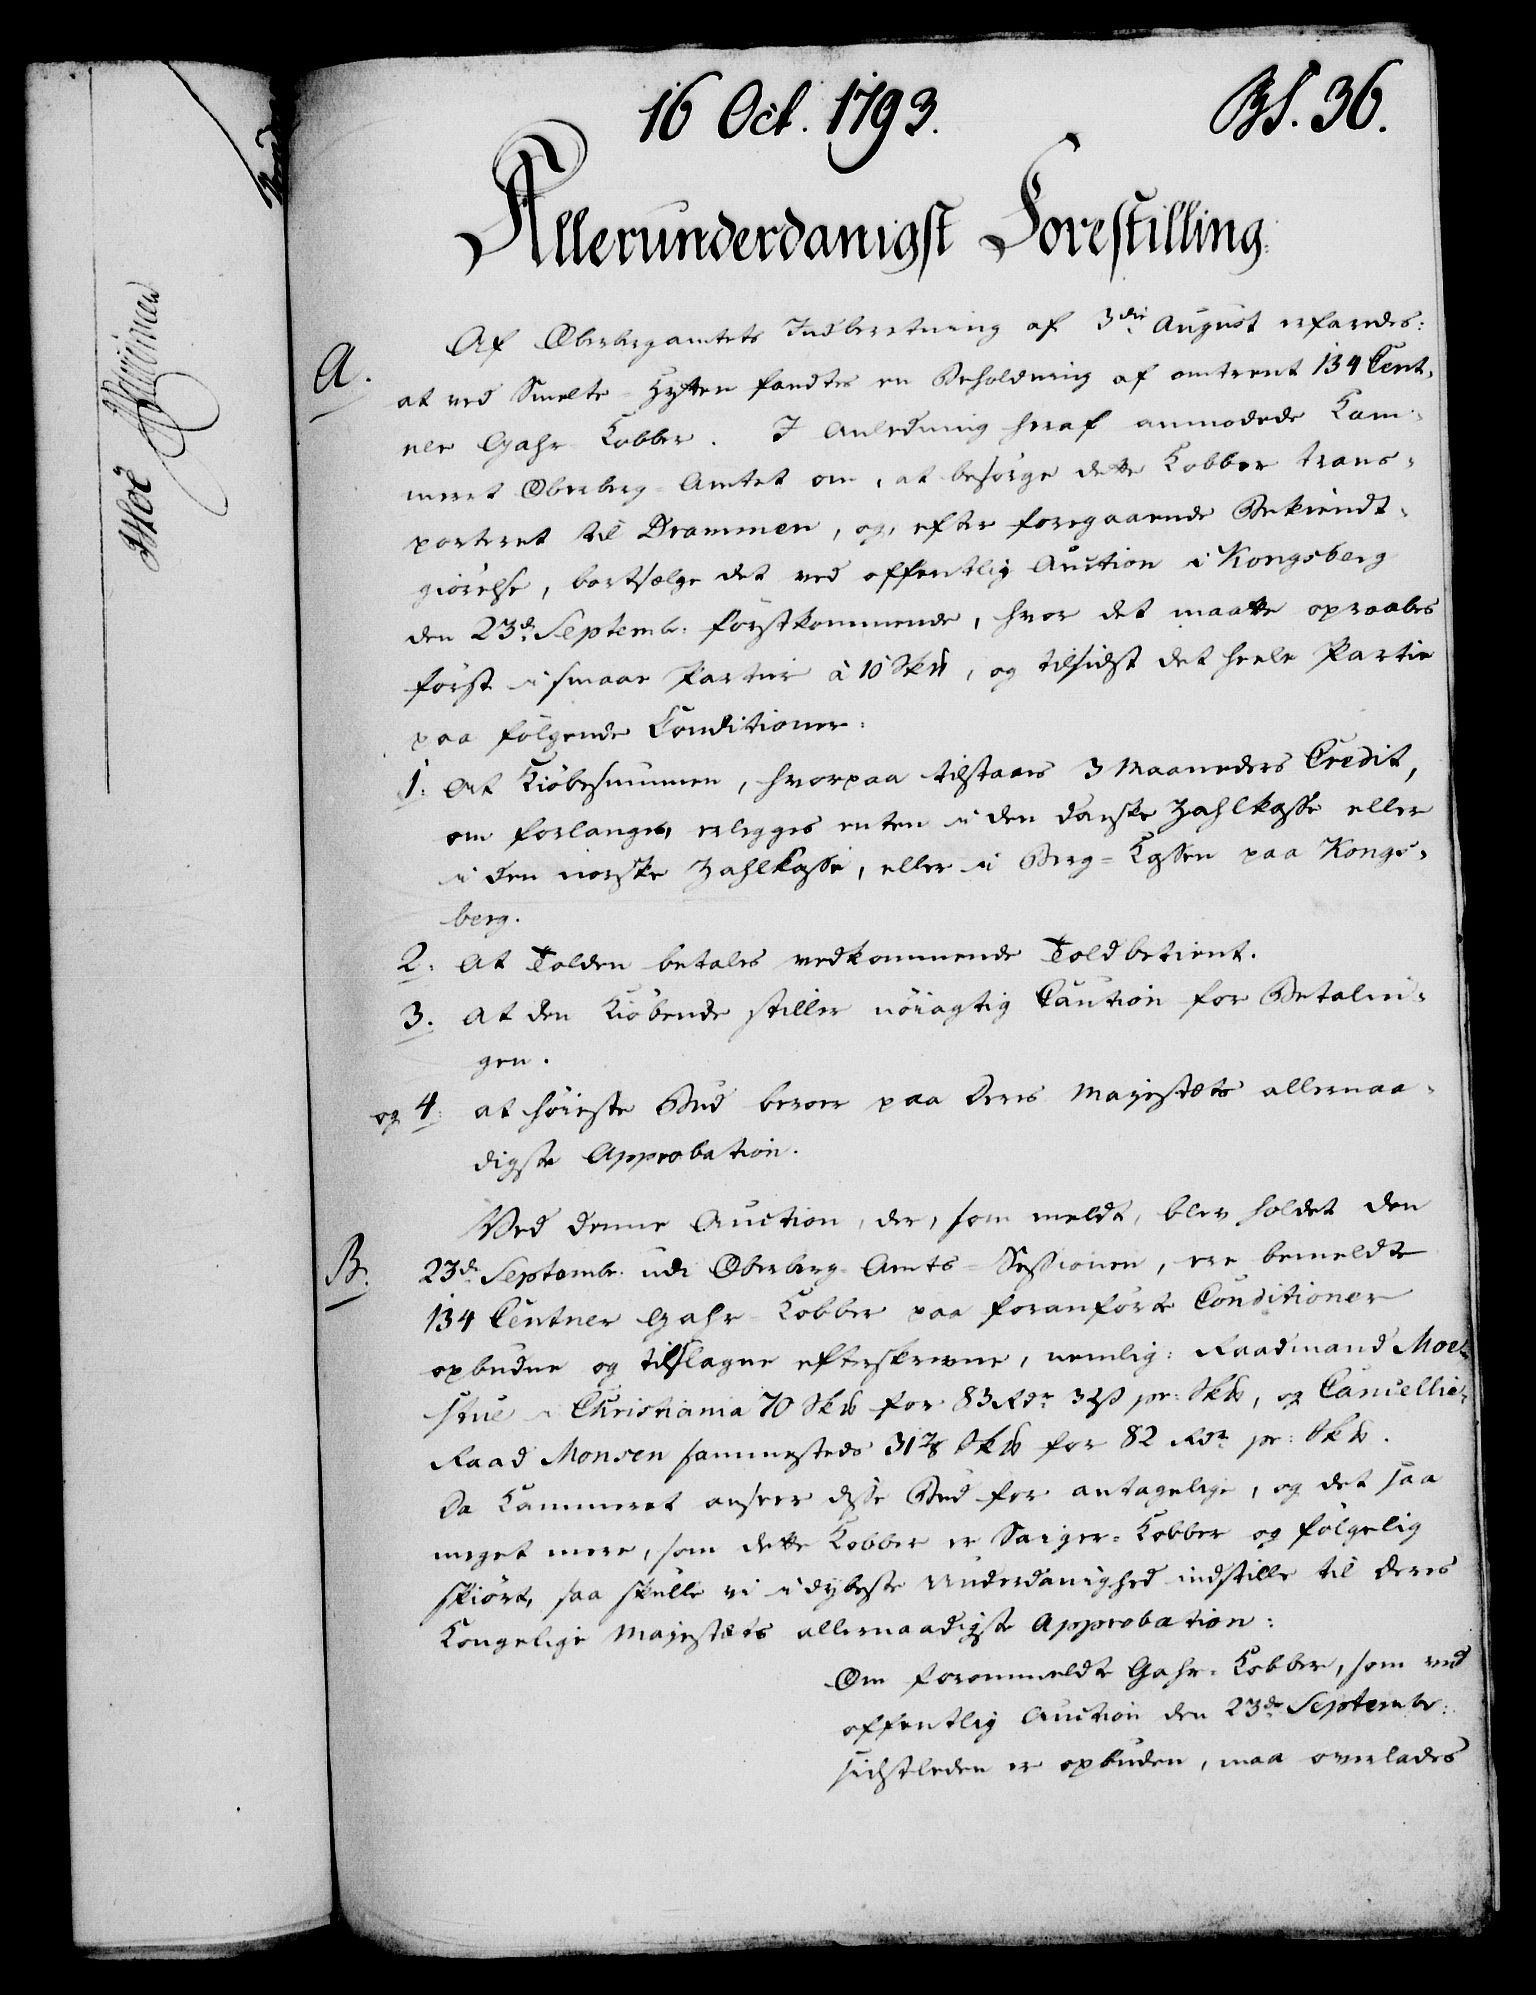 16 Oct. 1793. Bs. 36.
Allerunderdanigst Forestilling.
A. Af Oberbergamtets Indberetning af 3die August erfaredes:
at ved Smelte-Hytten fandtes en Beholdning af omtrent 134 Cent-
ner Gahr-Kobber. I Anledning heraf anmodede Kam-
meret Oberberg-Amtet om, at besörge dette Kobber trans-
porteret til Drammen, og, efter foregaaende Bekiendt-
giörelse, bortsælge det ved offentlig Auction i Kongsberg
den 23de Septemb: förstkommende, hvor det maatte opraabes
först i smaae Partier à 10 Sk℔, og tilsidst det heele Partie
paa fölgende Conditioner:
1. At Kiöbesummen, hvorpaa tilstaaes 3 Maaneders Credit,
om forlanges, erlegges enten i den danske Zahlkasse eller
i den norske Zahlkasse, eller i Berg-Cassen paa Kongs-
berg.
2. At Tolden betales vedkommende Toldbetient.
3. At den Kiöbende stiller nöiagtig Caution for Betalin-
gen.
og 4. at höieste Bud beroer paa Deres Majestæts allernaa-
digste Approbation.
B. Ved denne Auction, der, som meldt, blev holdet den
23de Septembr. udi Oberberg-Amts-Sessionen, ere bemeldte
134 Centner Gahr-Kobber paa foranförte Conditioner
opbudne og tilslagne efterskrevne, nemlig: Raadmand Moe-
stue i Christiania 70 Sk℔ for 83 Rdr 32ß pr: Sk℔, og Cancellie-
Raad Monsen sammesteds 31 7/8 Sk℔ for 82 Rdr pr: Sk℔.
Da Kammeret anseer disse Bud for antagelige, og det saa
meget mere, som dette Kobber er Saiger-Kobber og fölgelig
skiört, saa skulle vi i dybeste Underdanighed indstille til Deres
Kongelige Majestæts allernaadigste Approbation:
Om forommeldte Gahr-Kobber, som ved
offentlig Auction den 23de Septembr:
sidstleden er opbuden, maa overlades